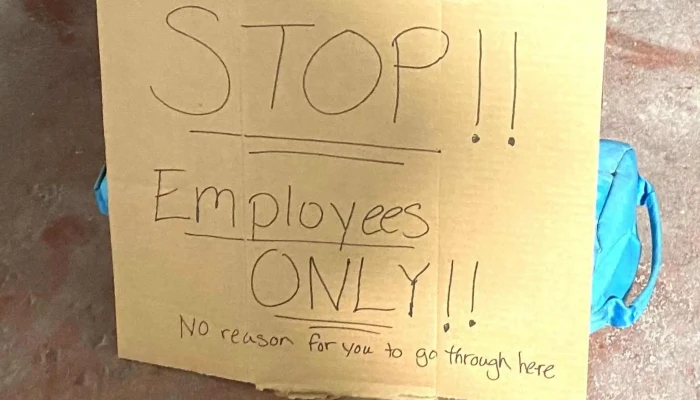 STOP!!
Employees
ONLY!!
No reason for you to go through here